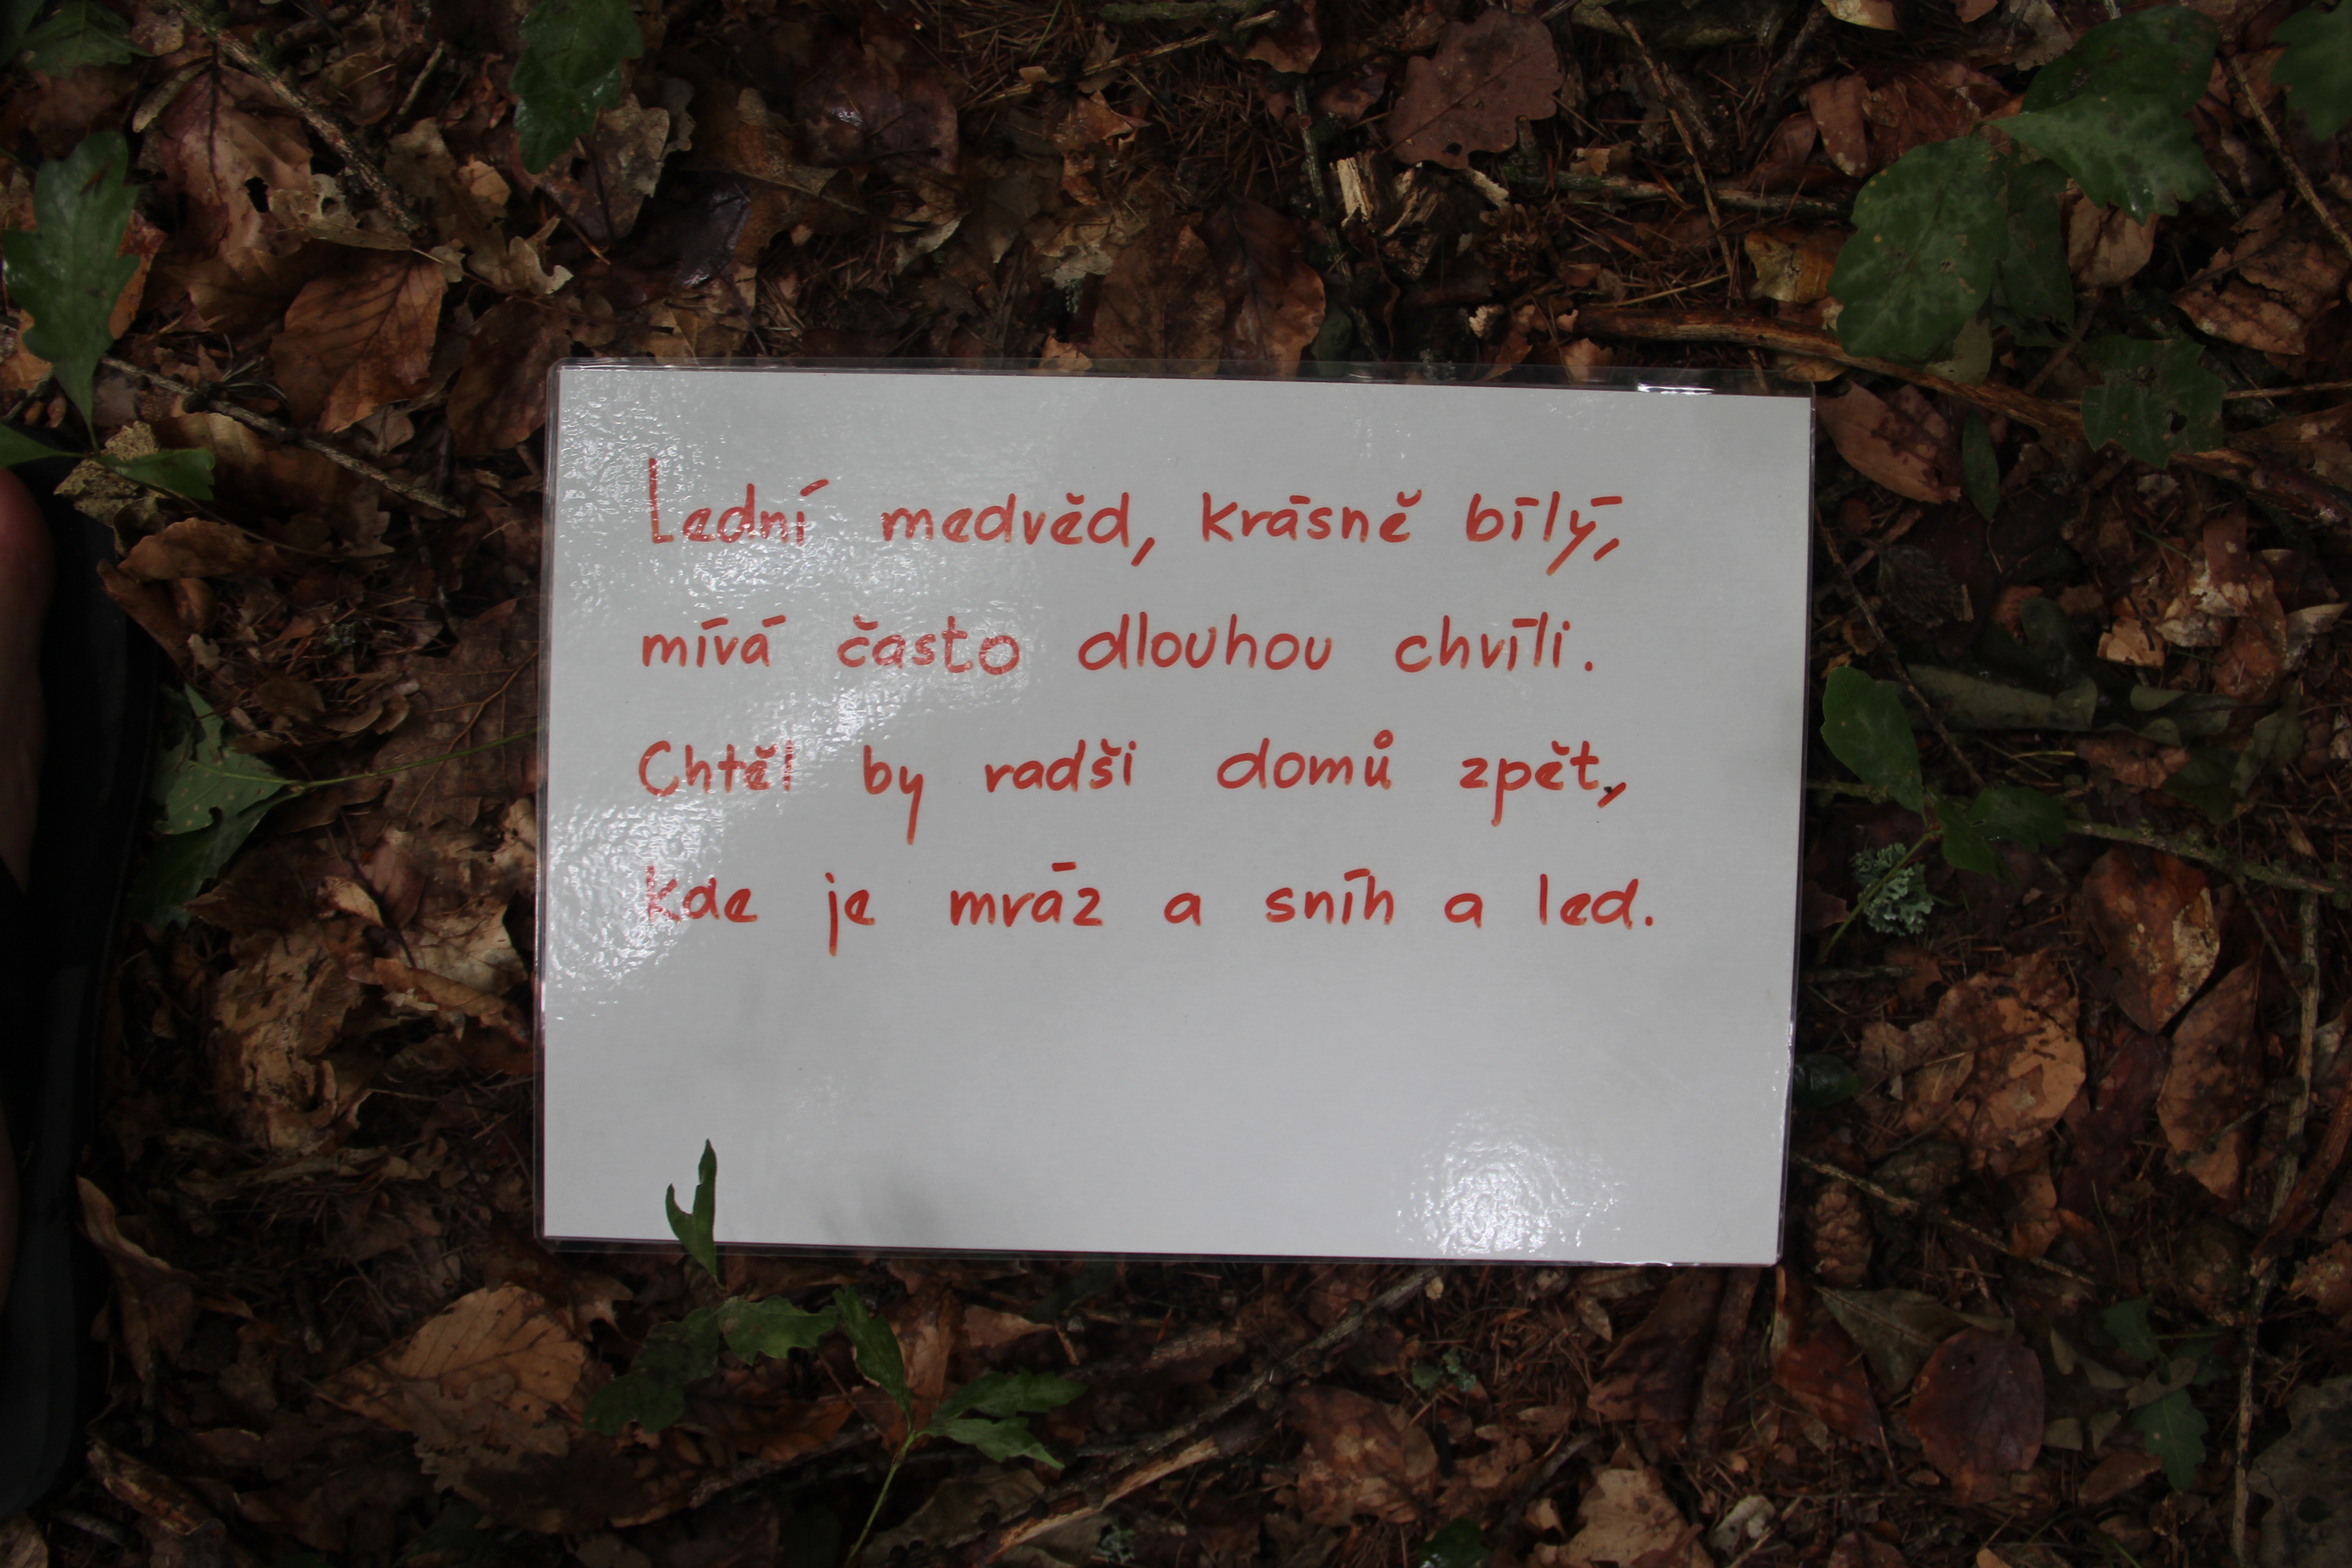 Lední medvěd, krásně bílý,
mívá často dlouhou chvíli.
Chtěl by radši domů zpět,
kde je mráz a sníh a led.